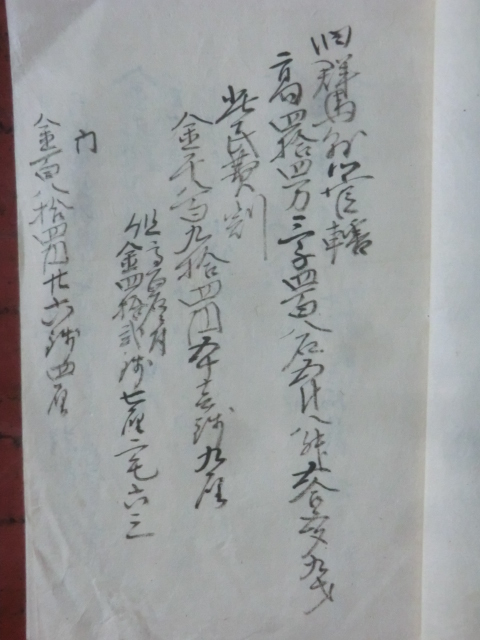 旧群馬県管轄
高四拾四万三千四百八石五斗八升合夕九才
此民費割
金千八百九拾四円五十壱銭九厘
但高百石ニ付
金四拾弐銭七厘二毛六三
内
金百八拾四円廿六銭四厘